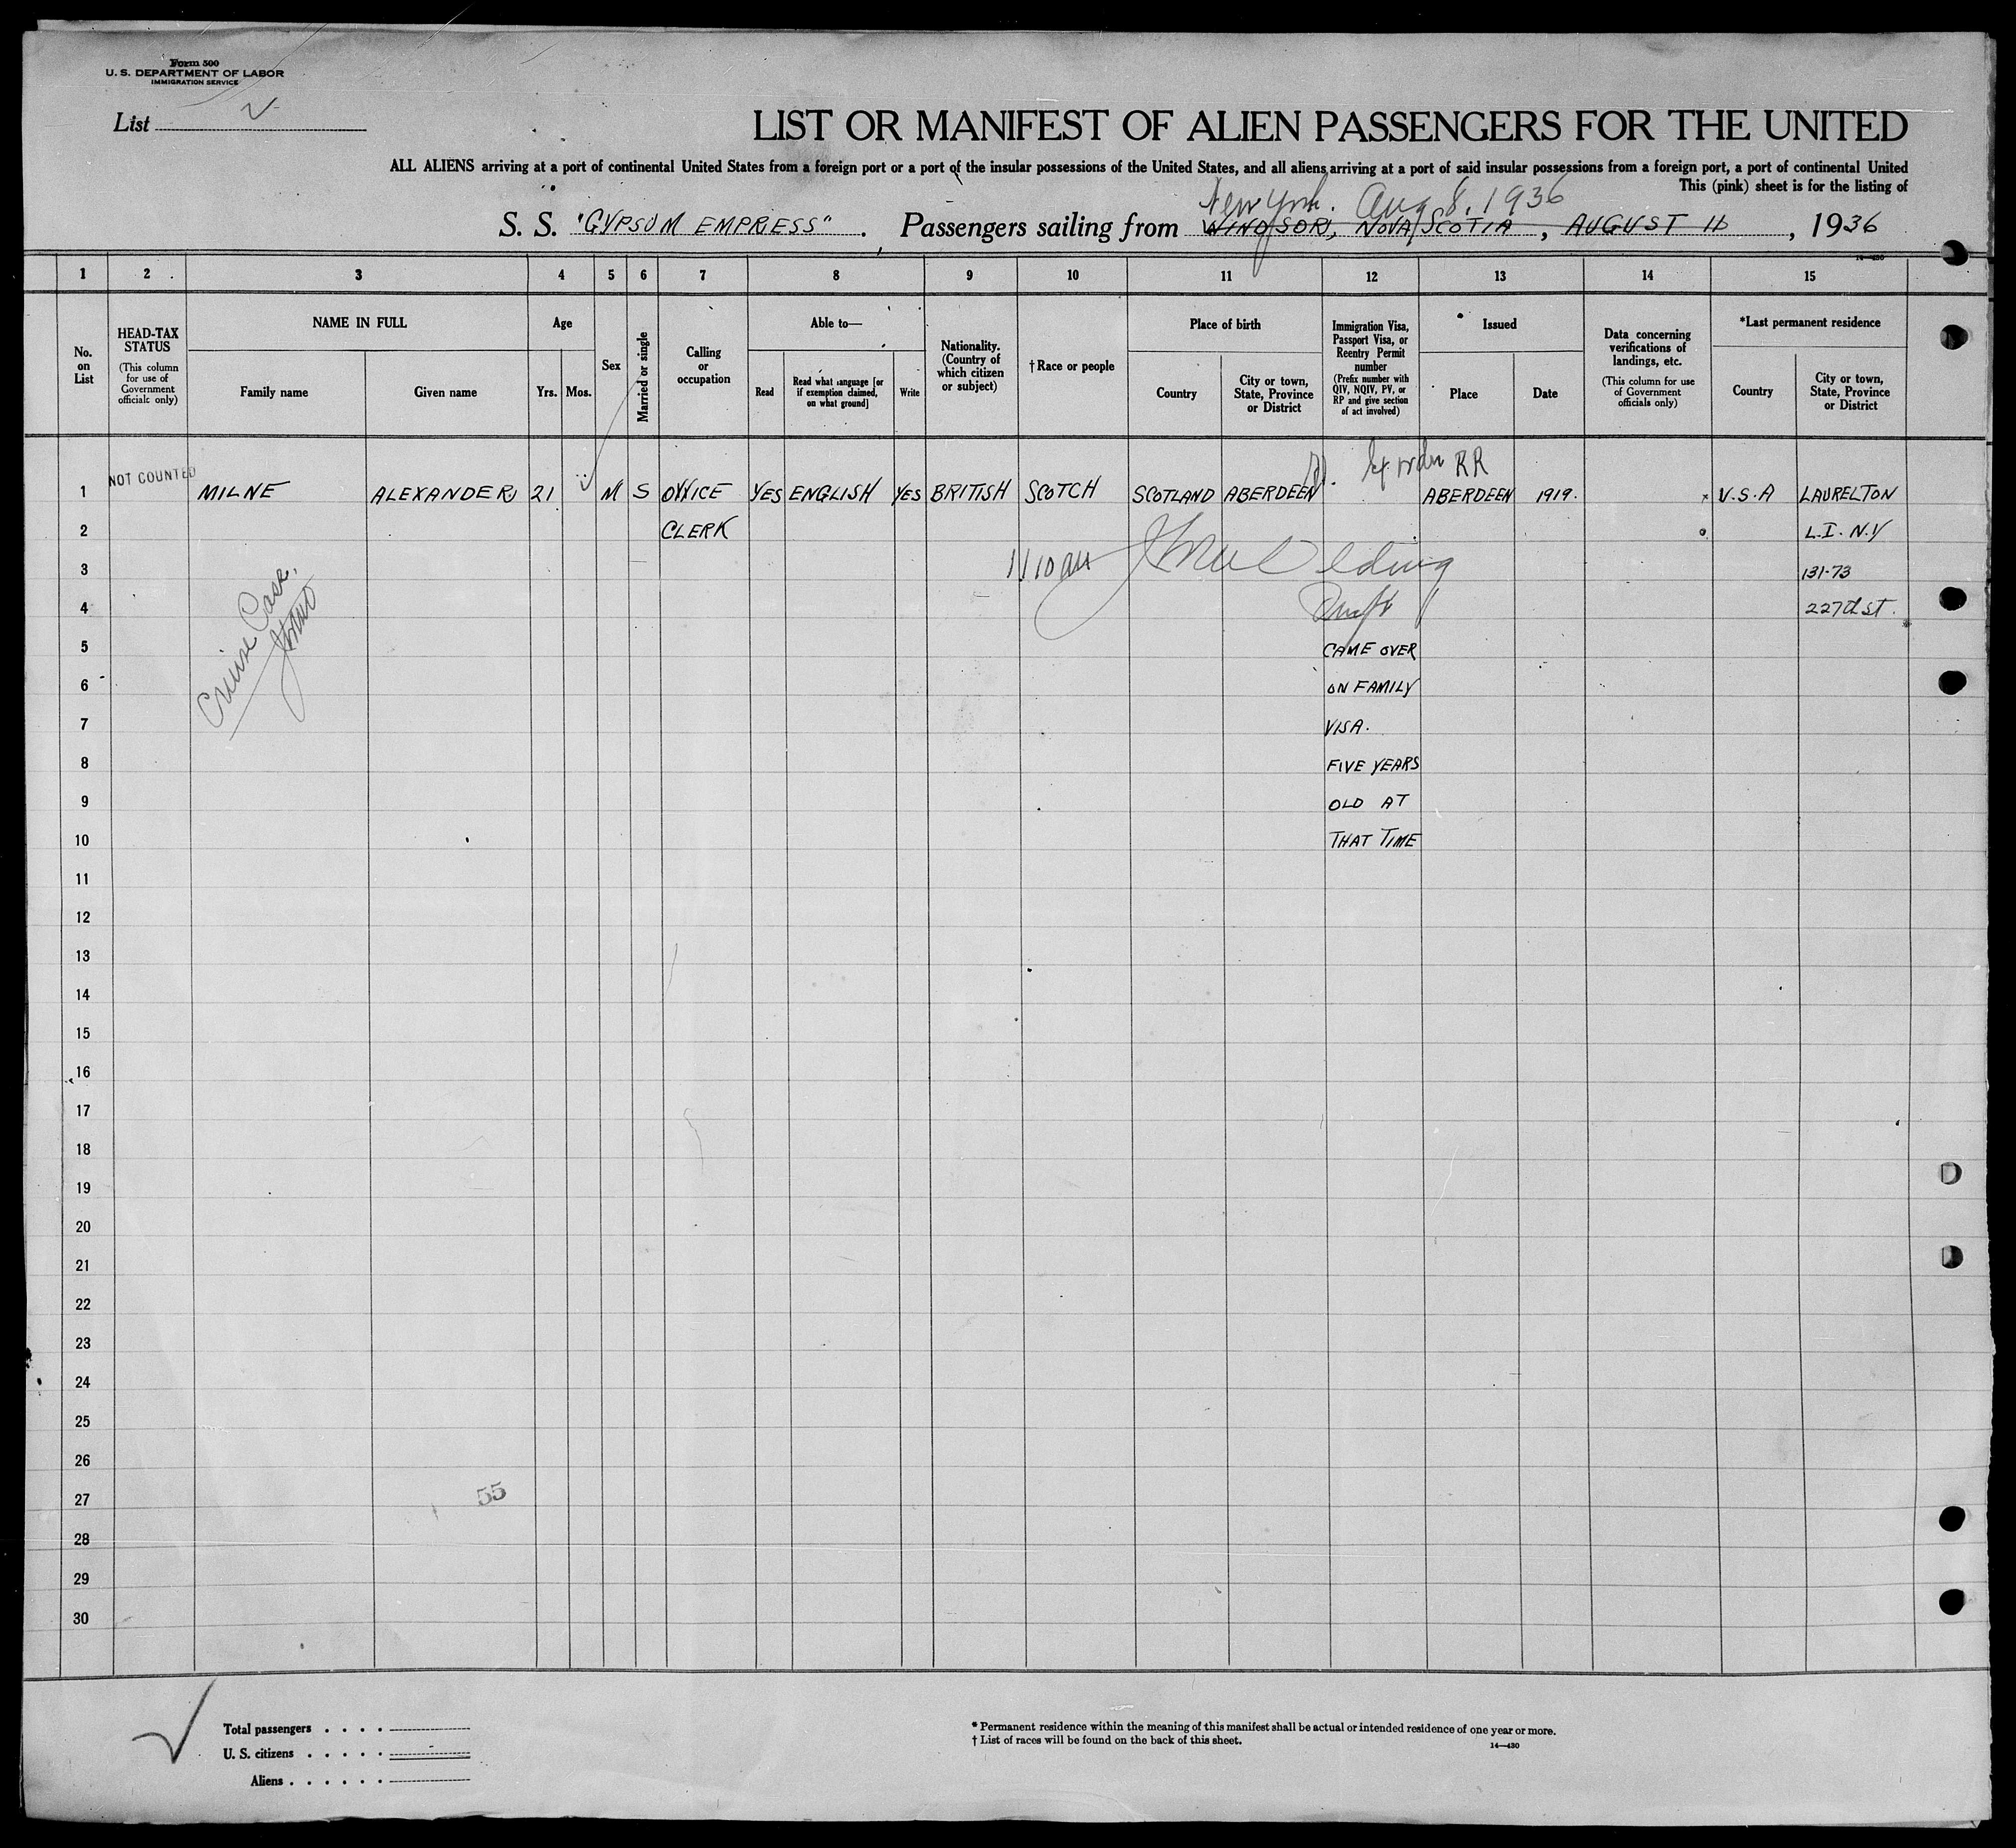 Form 500
U. S. DEPARTMENT OF LABOR
IMMIGRATION SERVICE
List
LIST OR MANIFEST OF ALIEN PASSENGERS FOR THE UNITED
ALL ALIENS arriving at a port of continental United States from a foreign port or a port of the insular possessions of the United States, and all aliens arriving at a port of said insular possessions from a foreign port, a port of continental United
This (pink) sheet is for the listing of
New York. Aug 8, 1936
S. S. "GYPSUM EMPRESS". Passengers sailing from WINDSOR, NOVA SCOTIA, AUGUST 11, 1936
14—430
1 2 3 4 5 6 7 8 9 10 11 12 13 14 15
No. on List
HEAD-TAX STATUS
(This column for use of Government officials only)
NAME IN FULL
Family name
Given name
Age
Yrs. Mos.
Sex
Married or single
Calling or occupation
Able to—
Read
Read what language [or if exemption claimed, on what ground]
Write
Nationality. (Country of which citizen or subject)
† Race or people
Place of birth
Country
City or town, State, Province or District
Immigration Visa, Passport Visa, or Reentry Permit number
(Prefix number with QIV, NQIV, PV, or RP and give section of act involved)
Issued
Place
Date
Data concerning verifications of landings, etc.
(This column for use of Government officials only)
*Last permanent residence
Country
City or town, State, Province or District
RR
1 NOT COUNTED MILNE ALEXANDER 21 M S OFFICE YES ENGLISH YES BRITISH SCOTCH SCOTLAND ABERDEEN ABERDEEN 1919. U.S.A LAURELTON
2 CLERK L.I. N.Y
3 131-73
4 227th St.
Cruise Case.
5 CAME OVER
6 ON FAMILY
7 VISA.
8 FIVE YEARS
9 OLD AT
10 THAT TIME
11
12
13
14
15
16
17
18
19
20
21
22
23
24
25
26
27 55
28
29
30
Total passengers . . . .
U. S. citizens . . . . .
Aliens . . . . . .
* Permanent residence within the meaning of this manifest shall be actual or intended residence of one year or more.
† List of races will be found on the back of this sheet.
14—430